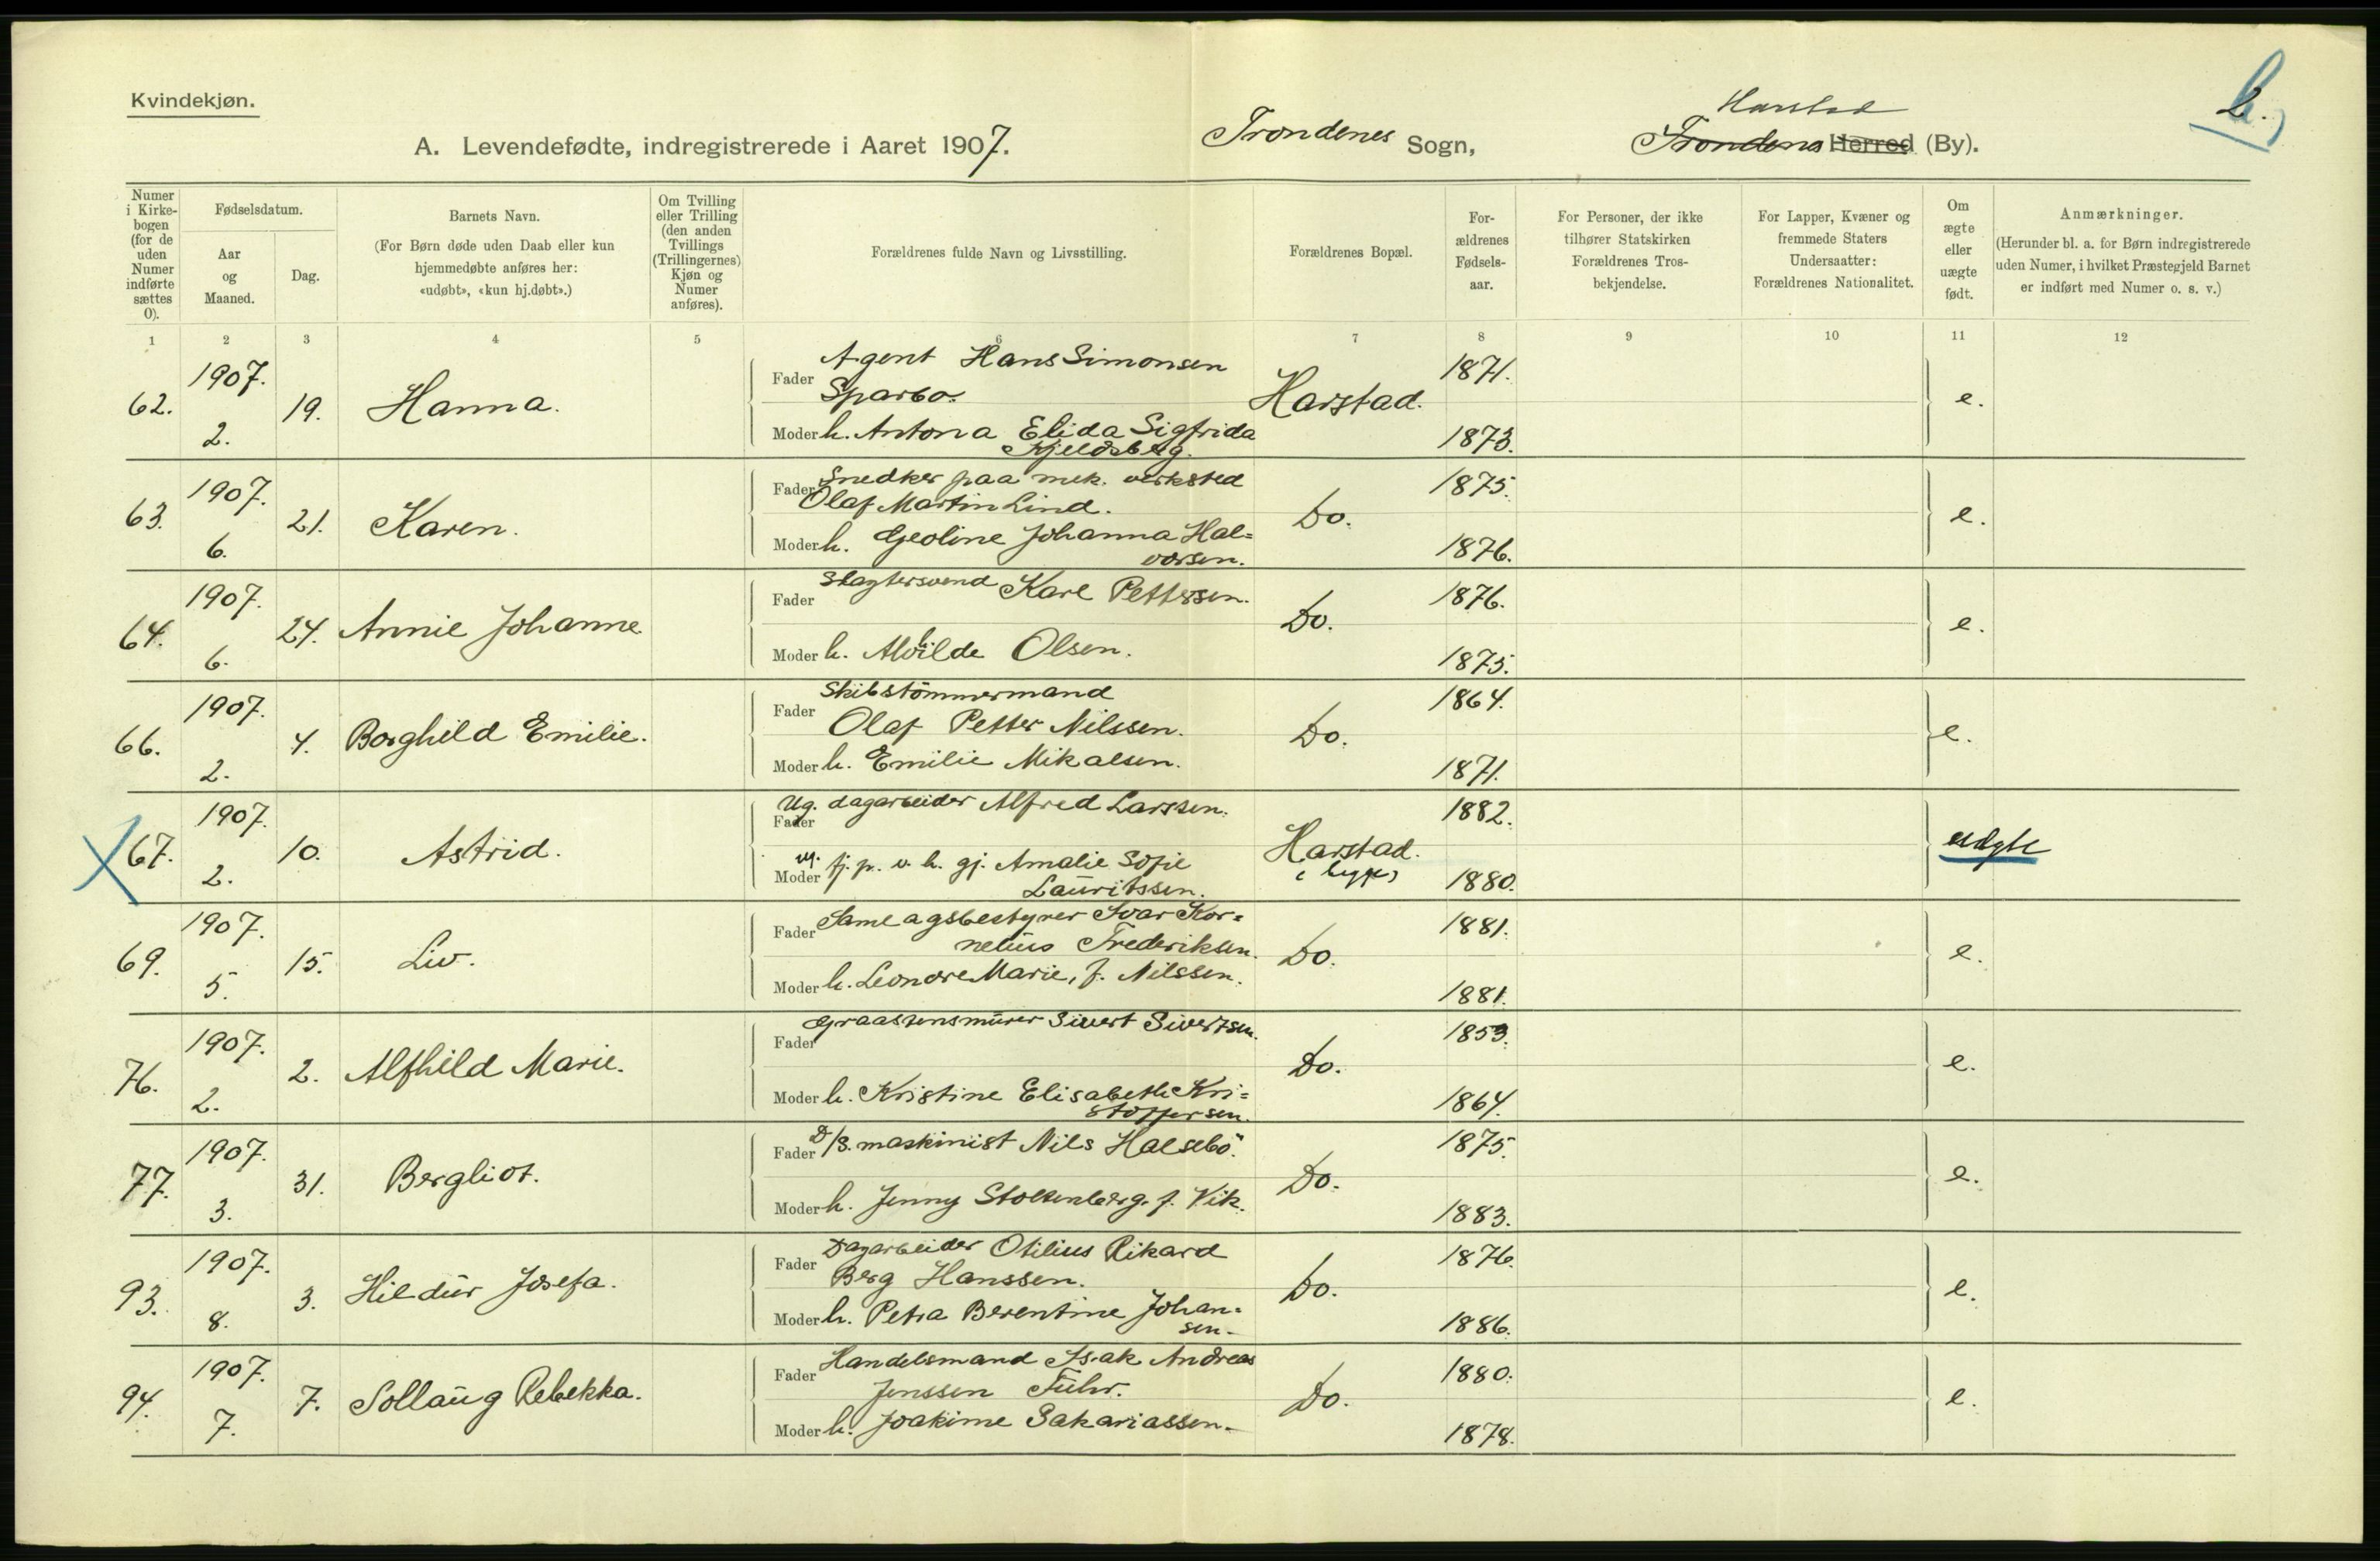 Kvindekjøn.
2.
A. Levendefødte, indregistrerede i Aaret 1907. Trondenes Sogn, Harstad Trondenes Herred (By).
Numer i Kirkebogen (for de uden Numer indførte sættes 0).
Fødselsdatum.
Aar og Maaned.
Dag.
Barnets Navn.
(For Børn døde uden Daab eller kun hjemmedøbte anføres her: «udøbt», «kun hj.døbt».)
Om Tvilling eller Trilling (den anden Tvillings (Trillingernes) Kjøn og Numer anføres).
Forældrenes fulde Navn og Livsstilling.
Forældrenes Bopæl.
For-ældrenes Fødsels-aar.
For Personer, der ikke tilhører Statskirken Forældrenes Tros-bekjendelse.
For Lapper, Kvæner og fremmede Staters Undersaatter: Forældrenes Nationalitet.
Om ægte eller uægte født.
Anmærkninger.
(Herunder bl. a. for Børn indregistrerede uden Numer, i hvilket Præstegjeld Barnet er indført med Numer o. s. v.)
1 2 3 4 5 6 7 8 9 10 11 12
62. 1907. 2. 19. Hanna.
Fader Agent Hans Simonsen
Sparbo. Harstad. 1871. e.
Moder h. Antona Elida Sigfrida
Kjeldsberg. 1873.
63. 1907. 6. 21. Karen.
Fader Snedker paa mek. verksted
Olaf Martin Lind. Do. 1875. e.
Moder h. Geoline Johanna Hal=
vorsen. 1876.
64. 1907. 6. 24. Annie Johanne
Fader Slagtersvend Karl Pettersen. Do. 1876. e.
Moder h. Alvilde Olsen. 1875.
66. 1907. 2. 4. Borghild Emilie.
Fader Skibstömmermand
Olaf Petter Nilssen. Do. 1864. e.
Moder h. Emilie Mikalsen. 1871.
67. 1907. 2. 10. Astrid.
Fader Ug. dagarbeider Alfred Larssen. Harstad. 1882. uægte
Moder ug. tj. p. v. h. gj. Amalie Sofie
Lauritssen. 1880.
69. 1907. 5. 15. Liv.
Fader Samlagsbestyrer Ivar Kor=
nelius Frederiksen. Do. 1881. e.
Moder h. Leonore Marie, f. Nilssen. 1881.
76. 1907. 2. 2. Alfhild Marie.
Fader Graastensmurer Sivert Sivertsen. Do. 1853. e.
Moder h. Kristine Elisabeth Kri=
stoffersen. 1864.
77. 1907. 3. 31. Bergliot.
Fader D/S. maskinist Nils Halsebö. Do. 1875. e.
Moder h. Jenny Stoltenberg. f. Vik. 1883.
93. 1907. 8. 3. Hildur Josefa.
Fader Dagarbeider Otilius Rikard
Berg Hanssen. Do. 1876. e.
Moder h. Petra Berentine Johan=
sen. 1886.
94. 1907. 7. 7. Sollaug Rebekka.
Fader Handelsmand Isak Andreas
Jenssen Fuhr. Do. 1880. e.
Moder h. Joakime Sakariassen. 1878.